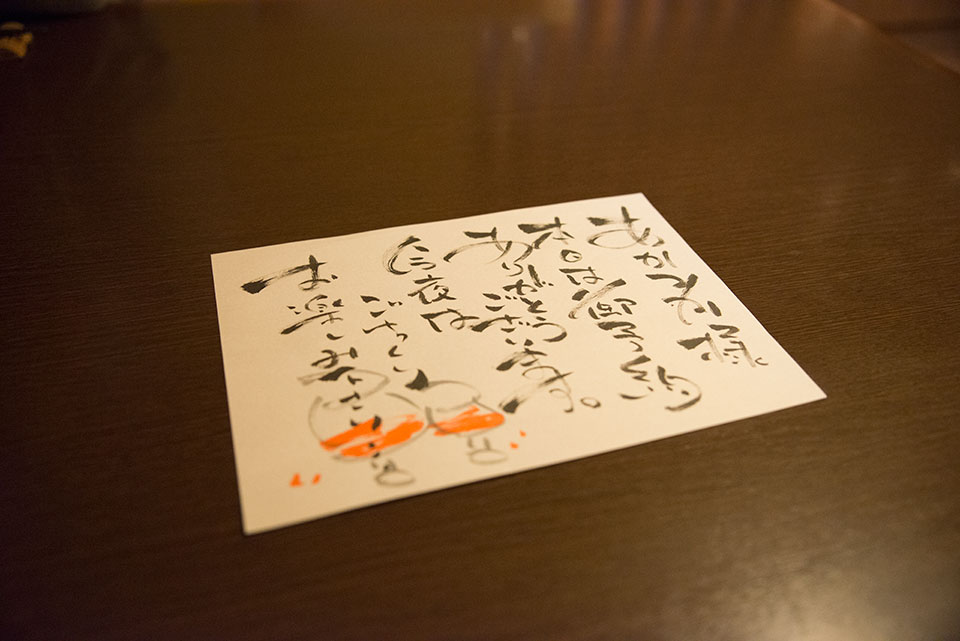 あかつか様
本日は御予約
ありがとうございます。
今夜は
ごゆっくり
お楽しみ下さい